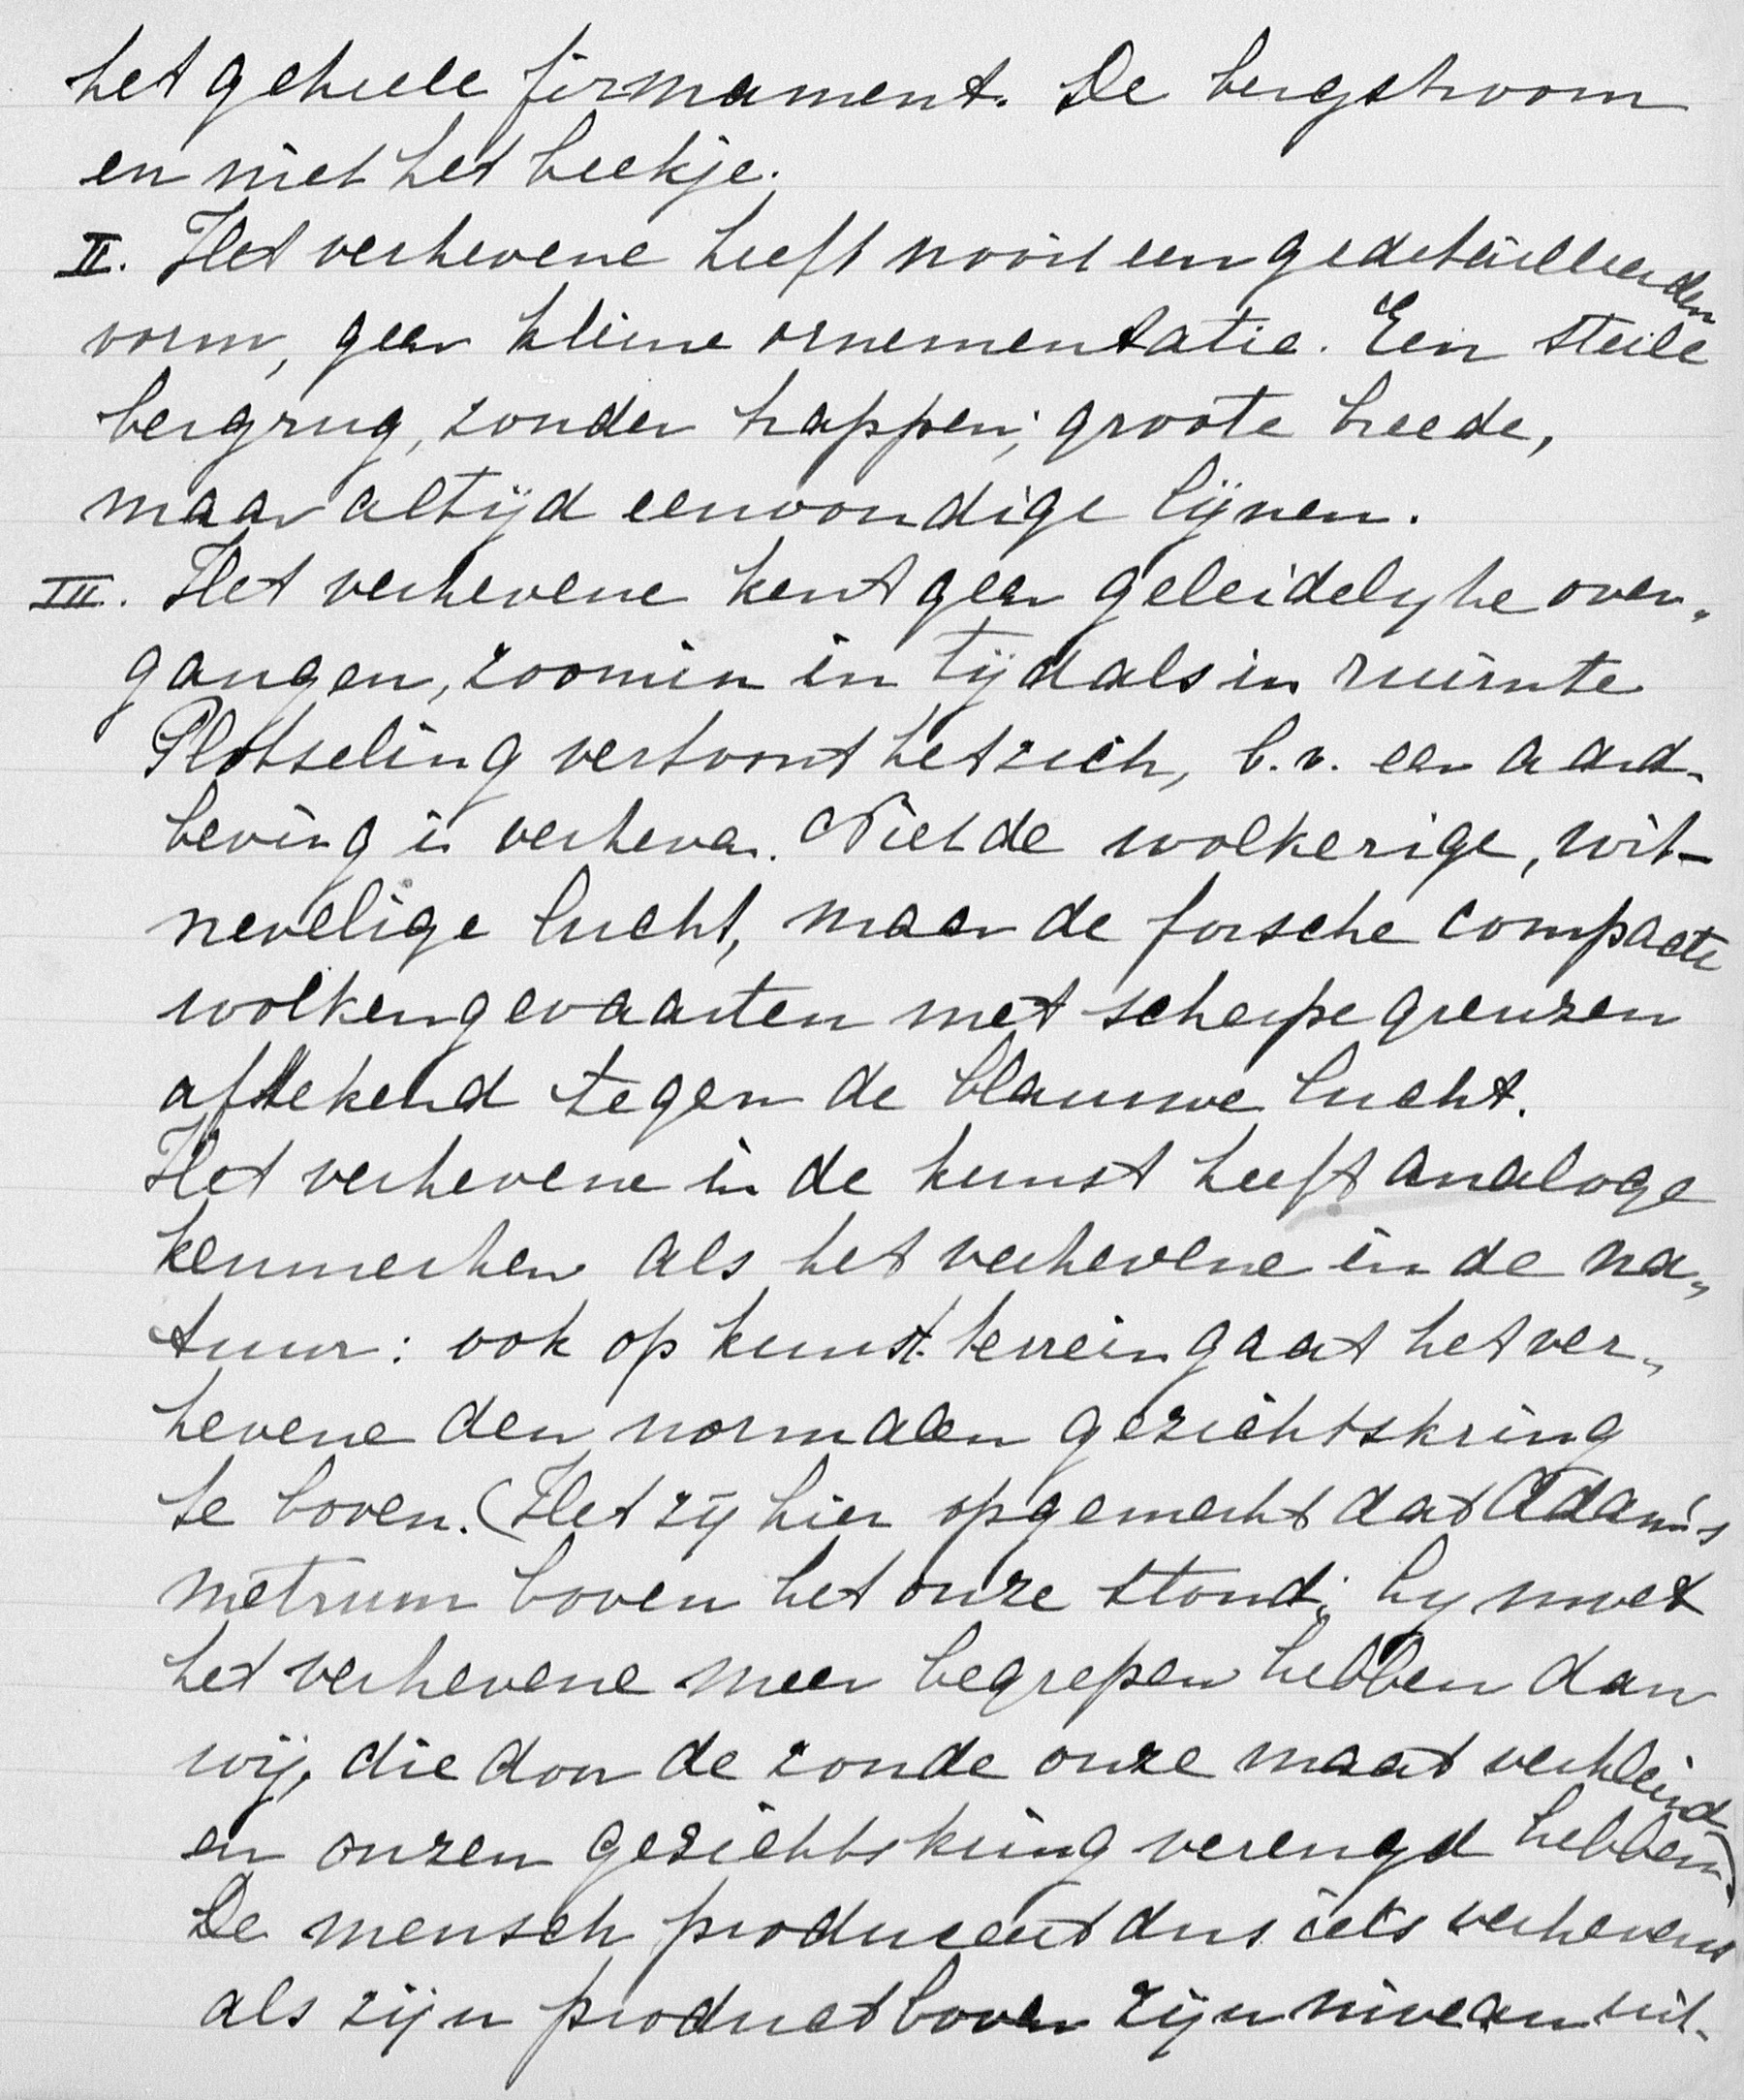 het geheele firmament. De bergstroom
en niet het beekje.
II. Het verhevene heeft nooit een gedetailleerden
vorm, geen kleine ornementatie. Een steile
bergrug, zonder happen; groote breede,
maar altijd eenvoudige lijnen.
III. Het verhevene kent geen geleidelyke over„
gangen, zoomin in tijd als in ruimte
Plotseling vertoont het zich, b.v. een aard-
beving is verheven. Niet de wolkerige, wit-
nevelige lucht, maar de forsche compacte
wolkengevaarten met scherpe grenzen
aftekend tegen de blauwe lucht.
Het verhevene in de kunst heeft analoge
kenmerken als het verhevene in de na„
tuur: ook op kunst-terrein gaat het ver„
hevene den normalen gezichtskring
te boven. (Het zij hier opgemerkt dat Adam's
metrum boven het onze stond; hy moet
het verhevene meer begrepen hebben dan
wij, die door de zonde onze maat verkleind
en onzen gezichtskring verengd hebben)
De mensch produceert dus iets verhevens
als zijn product boven zijn niveau uit-